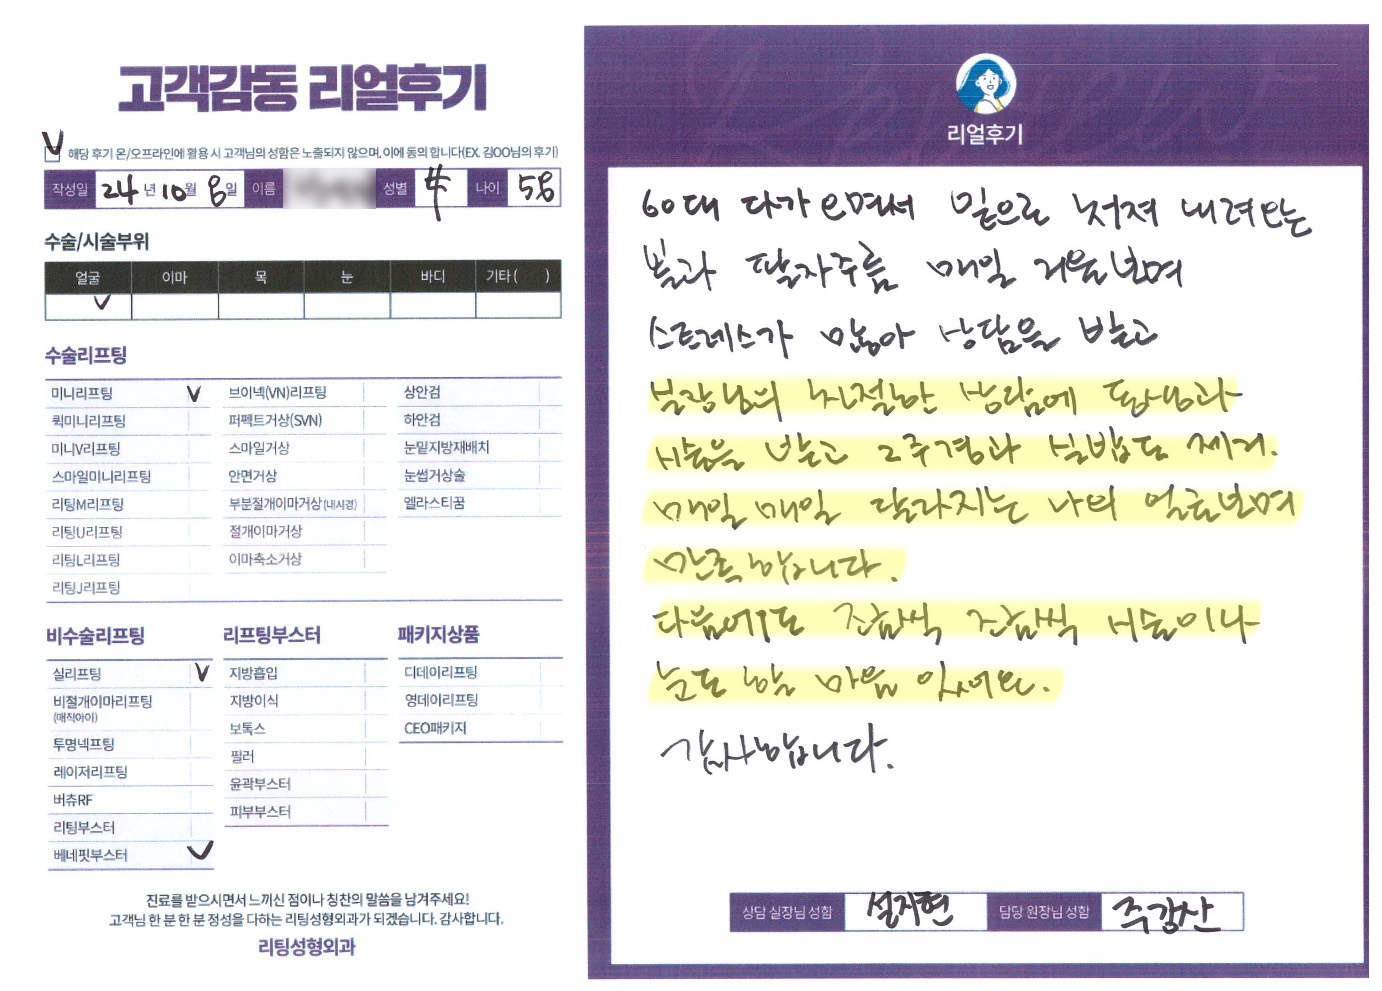 고객감동 리얼후기
해당 후기 온/오프라인에 활용 시 고객님의 성함은 노출되지 않으며, 이에 동의 합니다(EX. 김OO님의 후기)
작성일 24년 10월 8일 이름 성별 나이 58
수술/시술부위
얼굴 이마 목 눈 바디 기타( )
수술리프팅
미니리프팅 브이넥(VN)리프팅 상안검
퀵미니리프팅 퍼펙트거상(SVN) 하안검
미니V리프팅 스마일거상 눈밑지방재배치
스마일미니리프팅 안면거상 눈썹거상술
리팅M리프팅 부분절개이마거상(내시경) 엘라스티꿈
리팅U리프팅 절개이마거상
리팅L리프팅 이마축소거상
리팅J리프팅
비수술리프팅 리프팅부스터 패키지상품
실리프팅 지방흡입 디데이리프팅
비절개이마리프팅 지방이식 영데이리프팅
(매직아이)
보톡스 CEO패키지
투명넥프팅 필러
레이저리프팅 윤곽부스터
버츄RF 피부부스터
리팅부스터
베네핏부스터
진료를 받으시면서 느끼신 점이나 칭찬의 말씀을 남겨주세요!
고객님 한 분 한 분 정성을 다하는 리팅성형외과가 되겠습니다. 감사합니다.
리팅성형외과
리얼후기
60대 다가오면서 밑으로 쳐져 내려오는
볼과 팔자주름 매일 거울보며
스트레스가 많아 상담을 받고
실장님의 친절한 상담에 원장님과
시술을 받고 2주경과 실밥도 제거.
매일 매일 달라지는 나의 얼굴보며
만족합니다.
다음에도 조금씩 조금씩 시술이나
눈도 할 마음 있어요.
감사합니다.
상담 실장님 성함 설지현 담당 원장님 성함 주강산